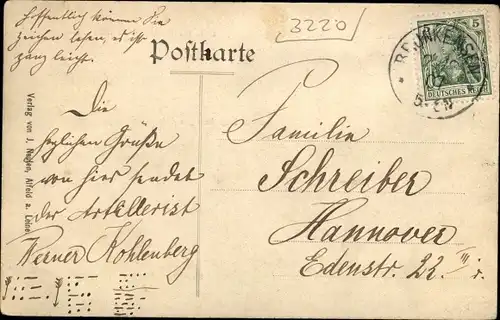 Hoffentlich können Sie
Zeichen lesen, es ist
ganz leicht.
3220
Postkarte
5
DEUTSCHES REICH
Verlag von J. Nolten, Alfeld a. Leine
Die
herzlichen Grüße
von hier sendet
der Artillerist
Werner Kohlenberg
Familie
Schreiber
Hannover
Edenstr. 22. III r.